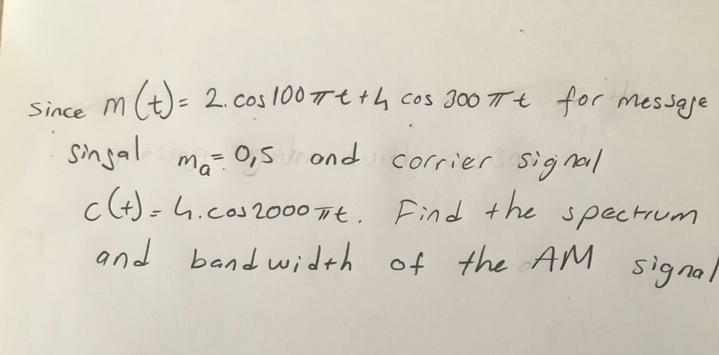 Since m(t)= 2.cos100πt+4 cos 300πt for message
singal mₐ= 0,5 and carrier signal
c(t)=4.cos2000πt. Find the spectrum
and bandwidth of the AM signal